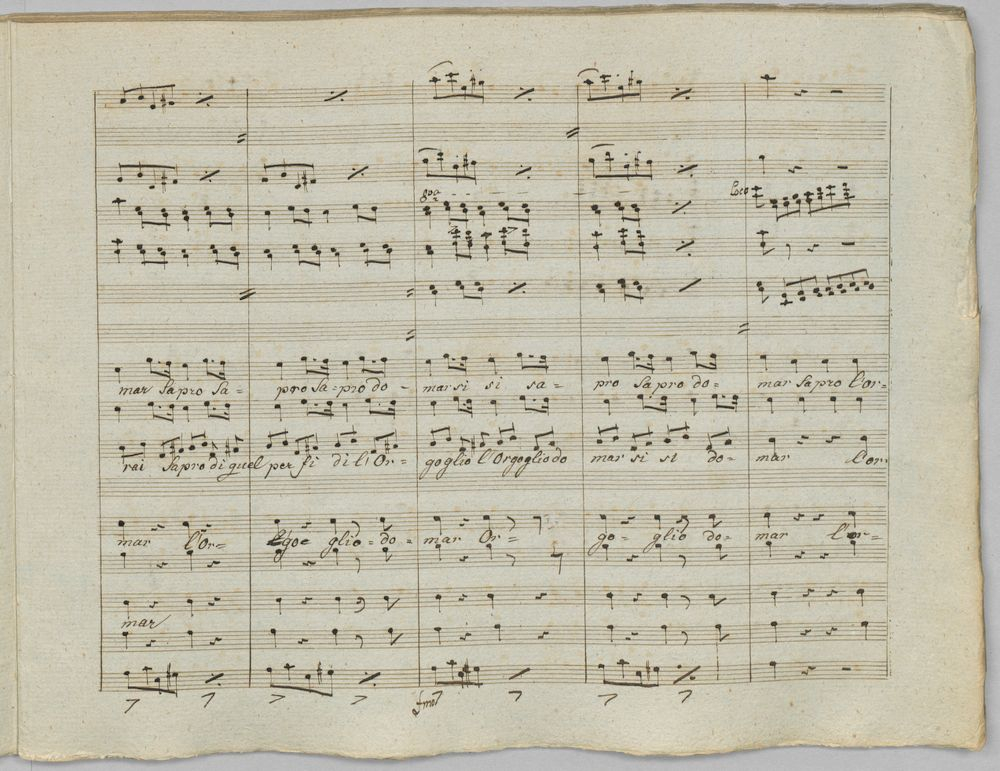 8va
Loco
mar Sapro Sa= pro Sa=pro do= mar si si sa= pro Sapro do= mar Sapro l'or=
rai Sapro di quel per fi di l'Or= goglio l'Orgoglio do mar si si do= mar l'or=
mar l'Or= go= glio=do= mar Or= go= glio do= mar l'or=
mar